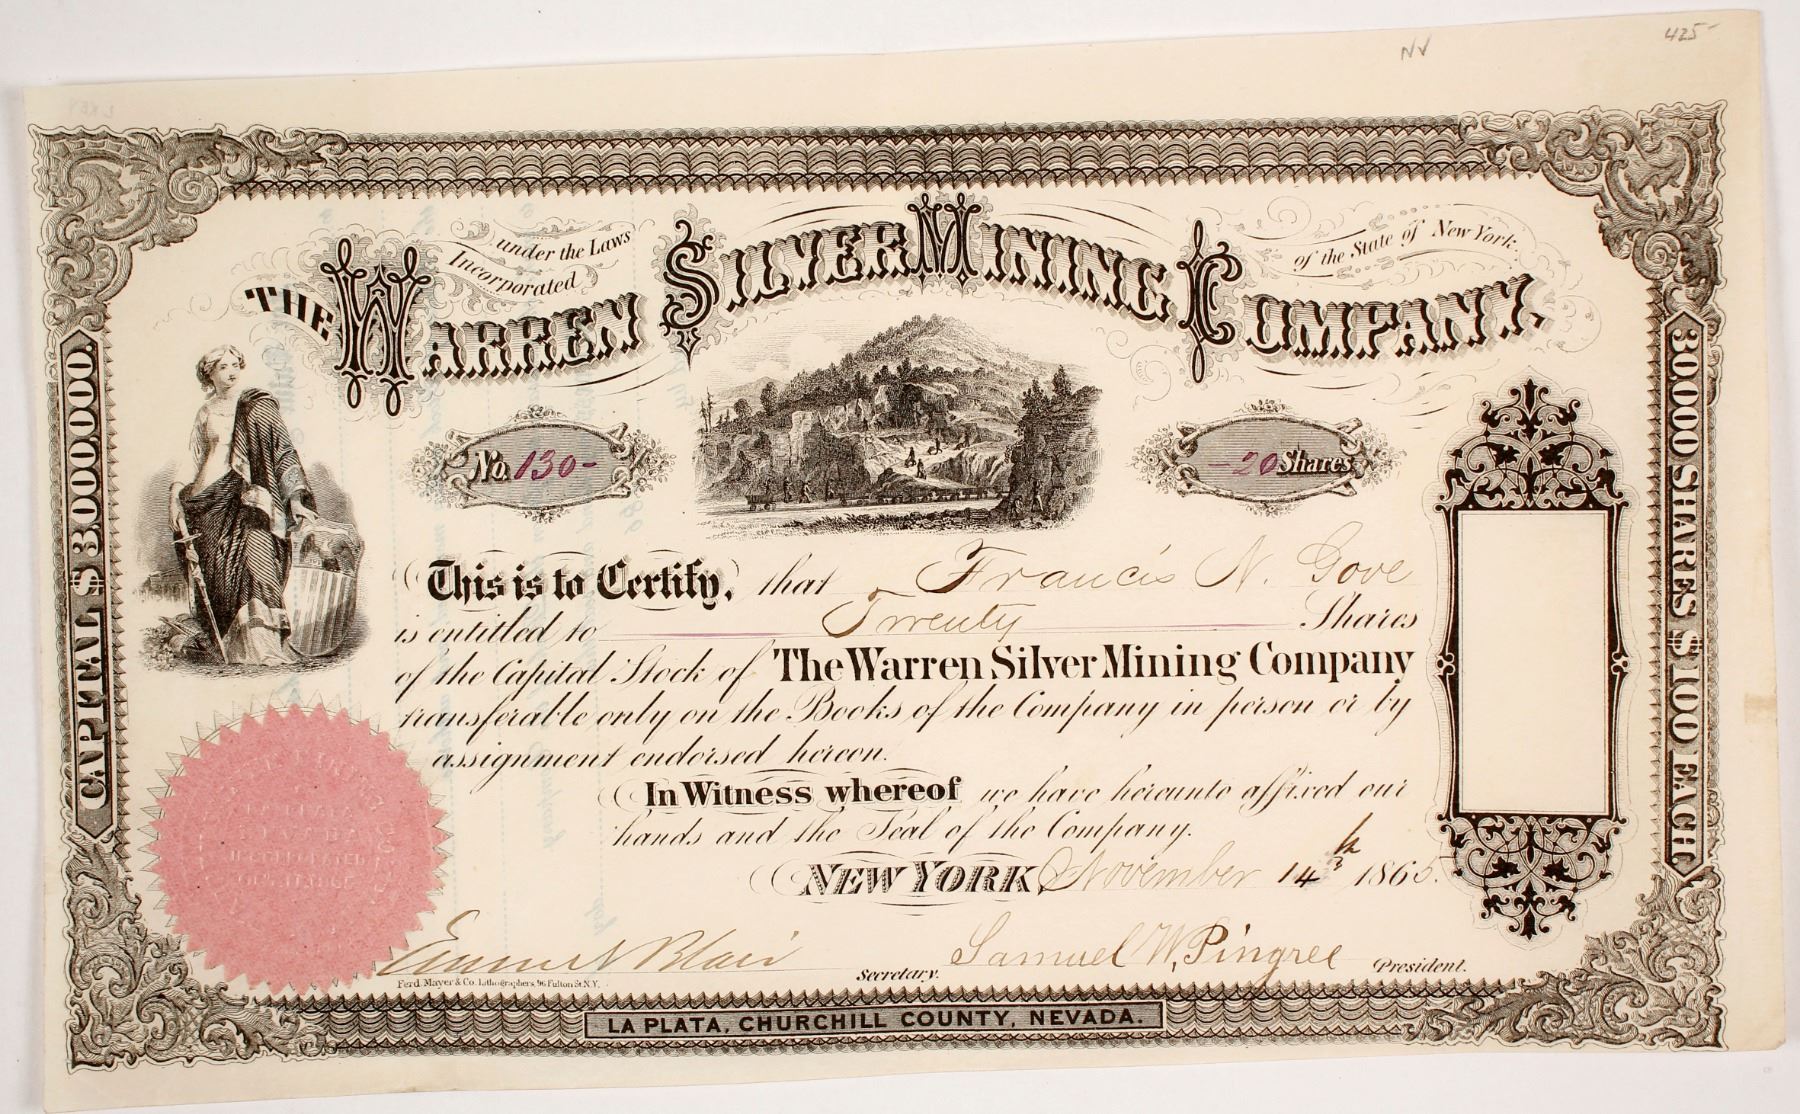 NV
425-
under the Laws
Incorporated
of the State of New York.
THE WARREN SILVER MINING COMPANY.
No. 130-
-20 Shares
This is to Certify, that Francis N. Gove
is entitled to Twenty Shares
of the Capital Stock of The Warren Silver Mining Company
transferable only on the Books of the Company in person or by
assignment endorsed hereon.
In Witness whereof we have hereunto affixed our
hands and the Seal of the Company.
NEW YORK November 14th 1865.
Blair Secretary. Samuel W. Pingree President.
Ferd. Mayer & Co. Lithographers, 96 Fulton St. N.Y.
LA PLATA, CHURCHILL COUNTY, NEVADA.
CAPITAL $3.000.000.
30.000 SHARES $100 EACH.
NEVADA